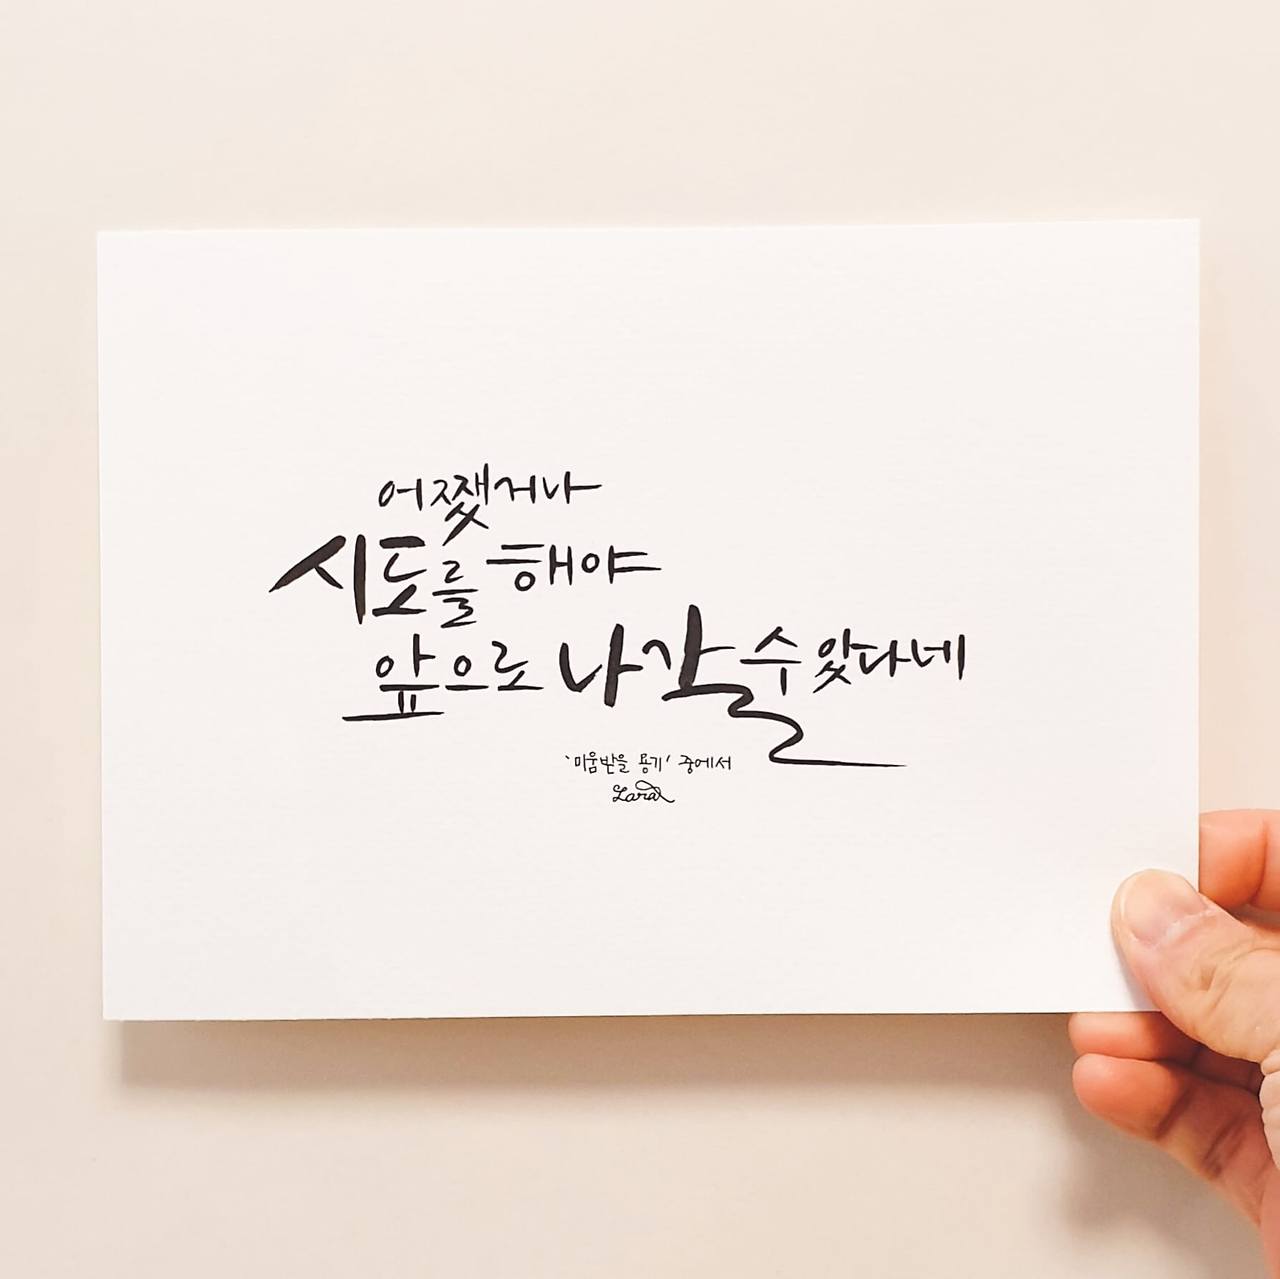 어쨌거나
시도를 해야
앞으로 나갈 수 있다네
'미움받을 용기' 중에서
Lara